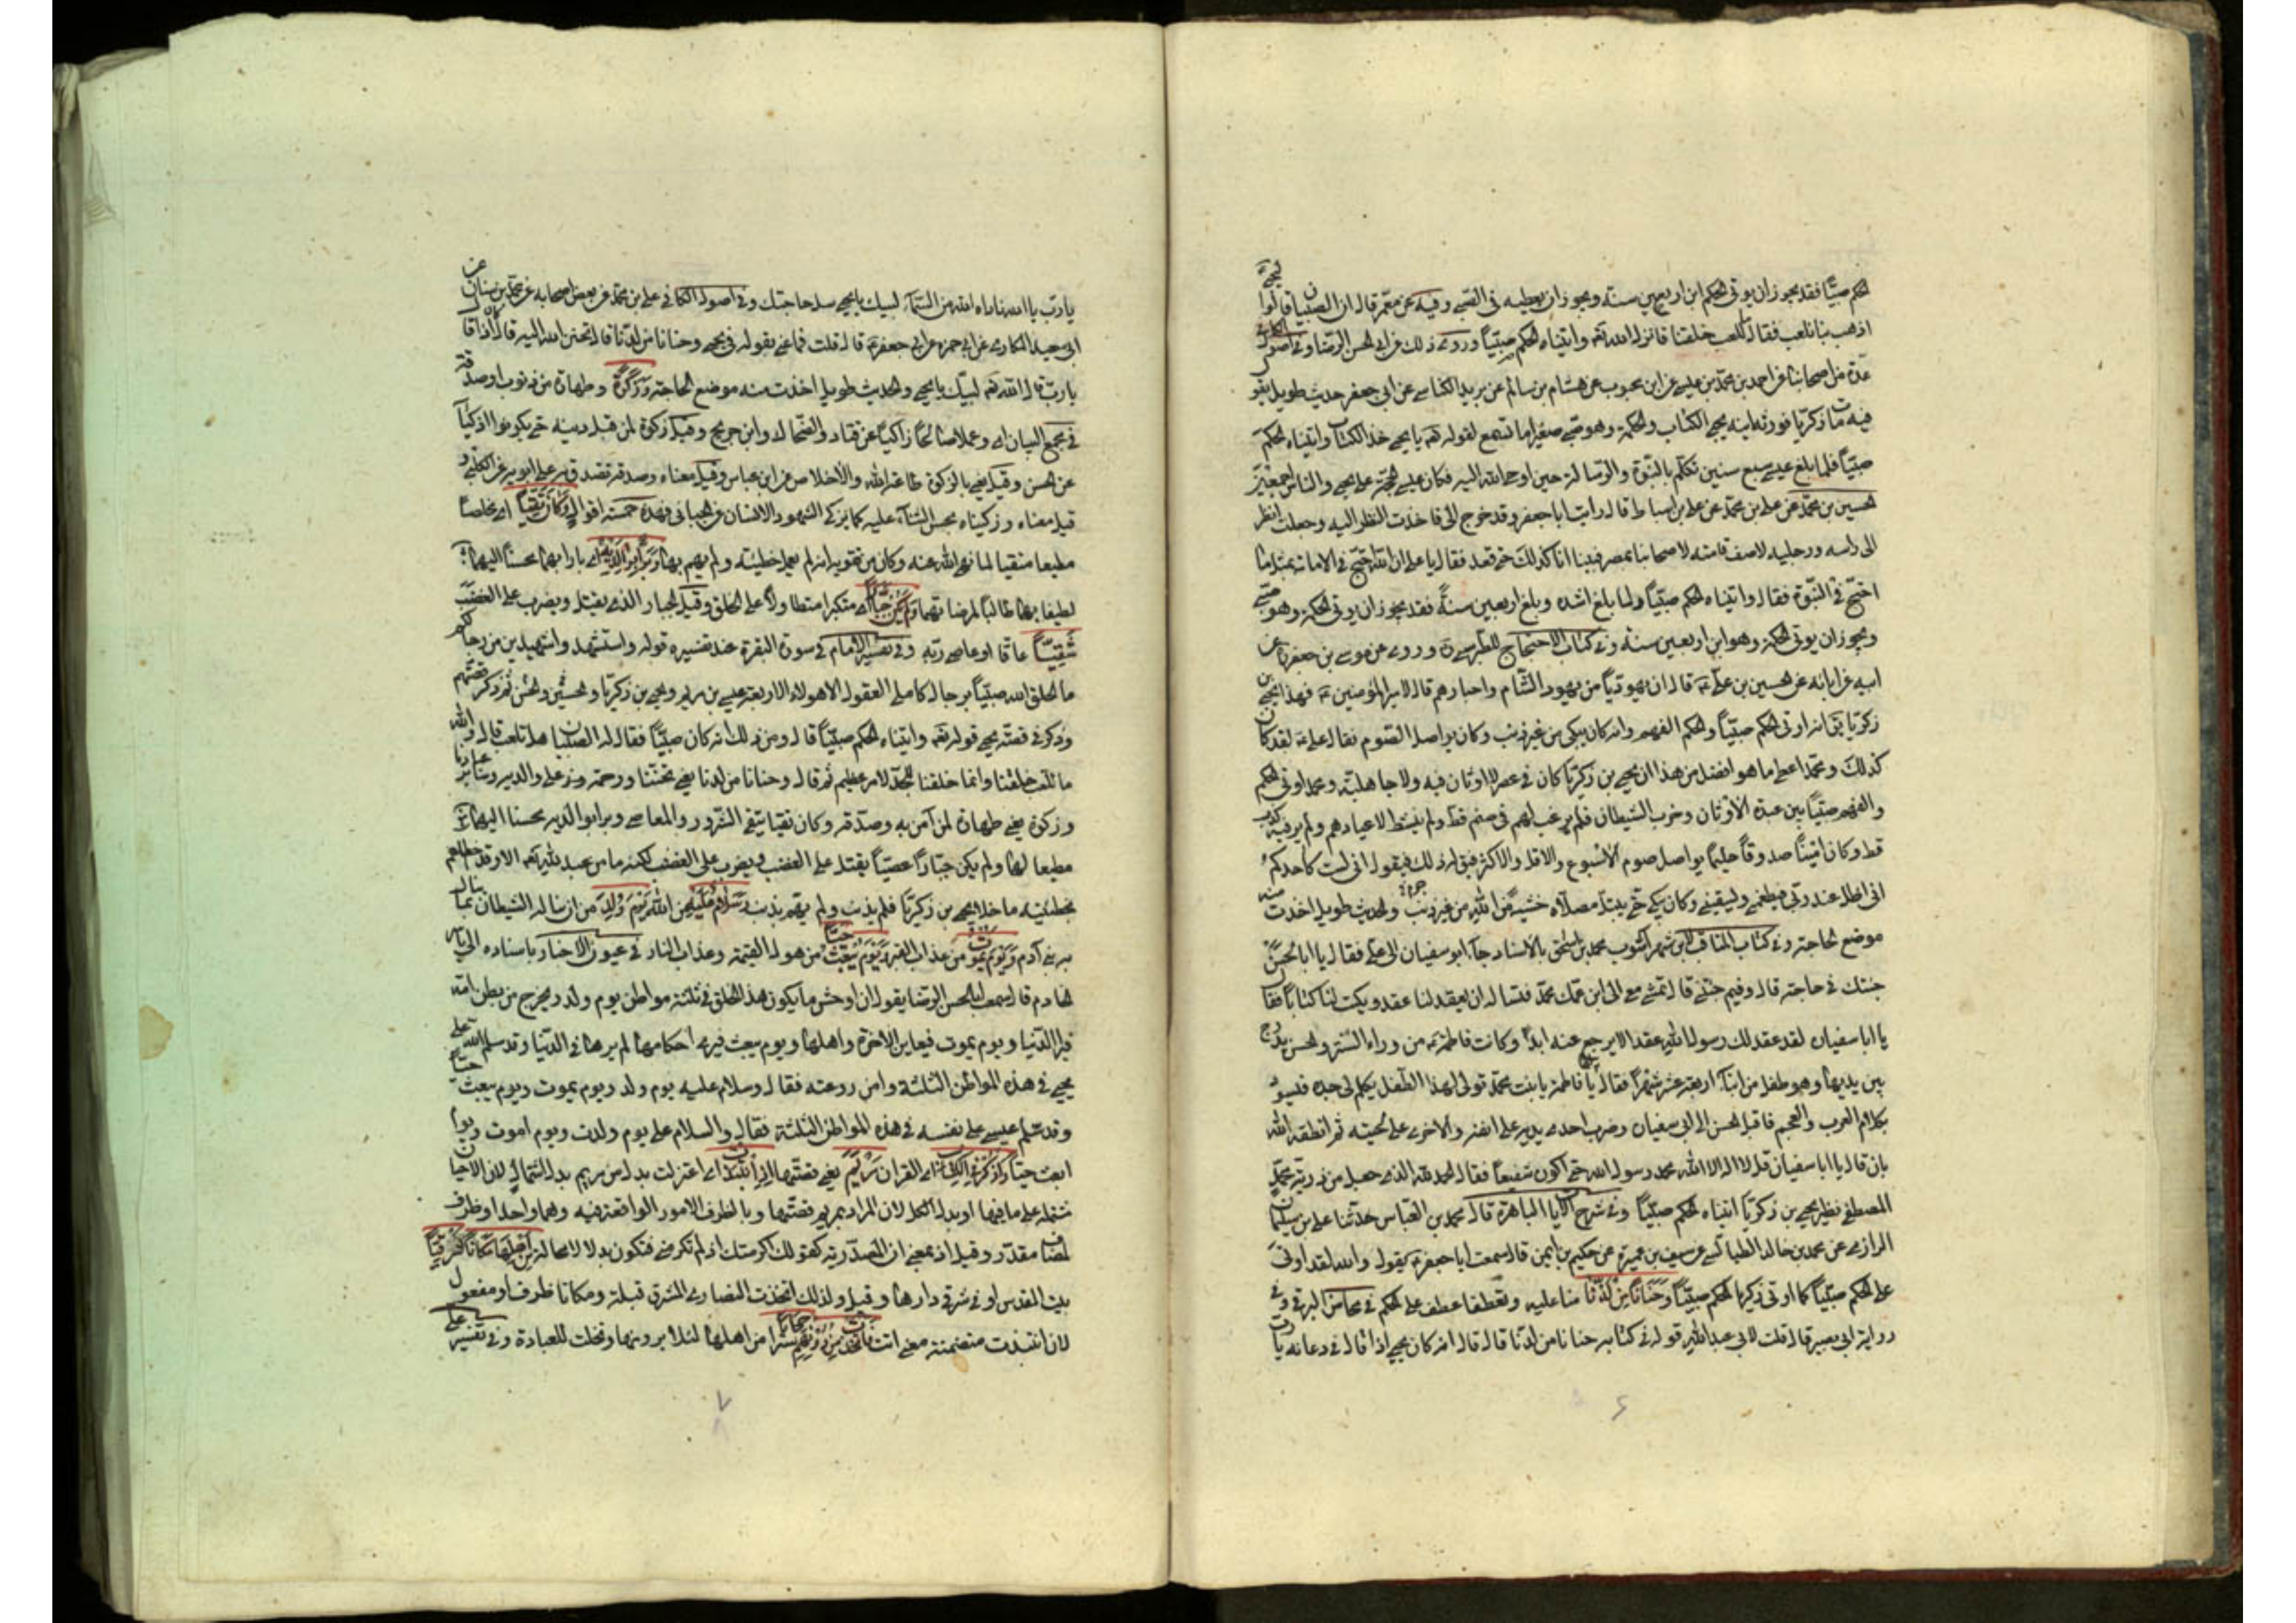 الحكم صبيّا فقد يجوز ان يؤتى الحكم ابن اربعين سنة ويجوز ان يعطيه فى الصبى وفيه عن معمر قال ان الصبيان قالوا ليحيى
اذهب بنا نلعب فقال ما للعب خلقنا فانزل الله تع واتيناه الحكم صبيّا وروى ذلك عن ابى الحسن الرضا وفى اصول الكافى
عدة من اصحابنا عن احمد بن محمد بن عيسى عن ابن محبوب عن هشام بن سالم عن بريد الكناسى عن ابى جعفر حديث طويل يقول
فيه مات زكريا فورثه ابنه يحيى الكتاب والحكمة وهو صبى صغير اما تسمع لقوله تع يا يحيى خذ الكتاب واتيناه الحكم
صبيّا فلما بلغ عيسى سبع سنين تكلم بالنبوة والرسالة حين اوحى الله اليه فكان عيسى الحجة على يحيى والناس اجمعين
الحسين بن محمد عن على بن محمد عن على بن اسباط قال رايت ابا جعفر وقد خرج الى فاخذت النظر اليه وجعلت انظر
الى راسه ورجليه لاصف قامته لاصحابنا بمصر فبينا انا كذلك حتى قعد فقال يا على ان الله احتج فى الامامة بمثل ما
احتج فى النبوة فقال واتيناه الحكم صبيّا ولما بلغ اشده وبلغ اربعين سنة فقد يجوز ان يؤتى الحكمة وهو صبى
ويجوز ان يوتى الحكمة وهو ابن اربعين سنة وفى كتاب الاحتجاج للطبرسى ره وروى عن موسى بن جعفر عن
ابيه عن ابائه عن الحسين بن على ع قال ان يهوديّا من يهود الشام واحبارهم قال لامير المؤمنين ع فهذا يحيى بن
زكريا يق انه اوتى الحكم صبيّا والحكم الفهم وانه كان يبكى من غير ذنب وكان يواصل الصوم فقال على ع لقد كان
كذلك ومحمد اعطى ما هو افضل من هذا ان يحيى بن زكريا كان فى عصر لا اوثان فيه ولا جاهلية ومحمد اوتى الحكم
والفهم صبيّا بين عبدة الاوثان وحزب الشيطان فلم يرغب لهم فى صنم قط ولم ينشط لاعيادهم ولم ير فيه كذب
قط وكان امينا صدوقا حليما يواصل صوم الاسبوع والاقل والاكثر فيق له ذلك فيقول انى لست كاحدكم
انى اظل عند ربى فيطعمنى ويسقينى وكان يبكى حتى يبتل مصلاه خشية من الله من غير جرم والحديث طويل اخذت منه
موضع الحاجة وفى كتاب المناقب لابن شهر اشوب محمد بن اسحق بالاسناد جاء ابو سفيان الى على فقال يا ابا الحسن
جئتك فى حاجة قال وفيم جئتنى قال تمشى معى الى ابن عمك محمد فتساله ان يعقد لنا عقدا ويكتب لنا كتابا فقال
يا ابا سفيان لقد عقد لك رسول الله عقدا لا يرجع عنه ابدا وكانت فاطمة ع من وراء الستر والحسن يدرج
بين يديها وهو طفل من ابناء اربعة عشر شهرا فقال لها يا فاطمة يا بنت محمد قولى لهذا الطفل يكلم لى جده فيسود
بكلامه العرب والعجم فاقبل الحسن الى ابى سفيان وضرب احدى يديه على انفه والاخرى على لحيته ثم انطقه الله
بان قال يا ابا سفيان قل لا اله الا الله محمد رسول الله حتى اكون شفيعا فقال الحمد لله الذى جعل من ذرية محمد
المصطفى نظير يحيى بن زكريا اتيناه الحكم صبيّا وفى شرح الايات الباهرة قال محمد بن العباس حدثنا على بن سليمان
الرازى عن محمد بن خالد الطيالسى عن سيف بن عميرة عن حكيم بن ايمن قال سمعت ابا جعفر ع يقول والله لقد اوتى
على الحكم صبيّا كما اوتى زكريا الحكم صبيّا وَحَنَانًا مِنْ لَدُنَّا منا عليه وتعطفا عطف على الحكم فى محاسن البرقى وفى
رواية ابى بصير قال قلت لابى عبد الله قوله فى كتابه حنانا من لدنا قال قال انه كان يحيى اذا قال فى دعائه يا رب
يا رب يا الله ناداه الله من السماء لبيك يا يحيى سل حاجتك وفى اصول الكافى على بن محمد عن بعض اصحابه عن محمد بن سنان عن
ابى سعيد المكارى عن ابى حمزه عن ابى جعفر ع قال قلت فما عنى بقوله فى يحيى وحنانا من لدنا قال تحنن الله اليه قال كان اذا قال
يا رب قال الله تع لبيك يا يحيى والحديث طويل اخذت منه موضع الحاجة وَزَكوةً وطهارة من ذنوب او صدقة
فى مجمع البيان اى وعملا صالحا زاكيا عن قتاد والضحاك وابن جريج وقيل زكوة لمن قبل دينه حتى يكونوا ازكياء
عن الحسن وقيل يعنى بالزكوة طاعة الله والاخلاص عن ابن عباس وقيل معناه وصدقة تصدق به على ابويه عن الكلبى و
قيل معناه وزكيناه بحسن الثناء عليه كما يزكى الشهود الانسان عن الجبائى فهذه خمسة اقوال وَكَانَ تَقِيًّا اى مخلصا
مطيعا متقيا لما نهى الله عنه وكان من تقويه انه لم يعمل خطيئة ولم يهم بها وَبَرًّا بِوَالِدَيْهِ اى بارا بهما محسنا اليهما
لطيفا بهما طالبا لمرضاتهما وَلَمْ يَكُنْ جَبَّارًا اى متكبرا متطاولا على الخلق وقيل الجبار الذى يقتل ويضرب على الغضب
شَقِيّيًّا عاقا او عاصى ربه وفى تفسير الامام فى سورة البقرة عند تفسيره قوله واستشهد واشهيدين من رجالكم
ما الحق الله صبيانا برجال كاملى العقول الا هولاء الاربعة عيسى بن مريم ويحيى بن زكريا والحسن والحسين ثم ذكر قصتهم
وذكر فى قصة يحيى قوله تع واتيناه الحكم صبيّا قال ومن ذلك انه كان صبيّا فقال له الصبيان هلم نلعب قال والله
ما للعب خلقنا وانما خلقنا للجد لامر عظيم ثم قال وحنانا من لدنا يعنى تحننا ورحمة على والديه وساير عبادنا
وزكوة يعنى طهارة لمن آمن به وصدقه وكان تقيا يتقى الشرور والمعاصى وبرا بوالديه محسنا اليهما
مطيعا لهما ولم يكن جبارا عصيّا يقتل على الغضب ويضرب على الغضب لكنه ما من عبد لله تع الا وقد اخطا او هم
بخطيئة ما خلا يحيى بن زكريا فلم يذنب ولم يهم بذنب وَسَلَامٌ عَلَيْهِ من الله يَوْمَ وُلِدَ من ان يناله الشيطان بما ينال
به بنى آدم وَيَوْمَ يَمُوتُ من عذاب القبر وَيَوْمَ يُبْعَثُ حَيًّا من هول القيمة وعذاب النار فى عيون الاخبار باسناده الى ياسر
الخادم قال سمعت ابا الحسن الرضا يقول ان اوحش ما يكون هذا الخلق فى ثلثة مواطن يوم ولد ويخرج من بطن امه
فيرا الدنيا ويوم يموت فيعاين الاخرة واهلها ويوم يبعث فيرى احكاما لم يرها فى الدنيا وقد سلم الله على
يحيى فى هذه المواطن الثلثة وامن روعته فقال وسلام عليه يوم ولد ويوم يموت ويوم يبعث حيّا
وقد سلم عيسى على نفسه فى هذه المواطن الثلثة فقال والسلام على يوم ولدت ويوم اموت ويوم
ابعث حيّا وَاذْكُرْ فِى الْكِتَابِ اى القران مَرْيَمَ يعنى قصتها اِذِ انْتَبَذَتْ اى اعتزلت بدل من مريم بدل اشتمال لان الاحيان
مشتملة على ما فيها او بدل الكل لان المراد بمريم قصتها وبالظرف الامور الواقعة فيه وهما واحد او ظرف
لمضاف مقدر وقيل اذ بمعنى ان المصدرية كقولك اكرمتك اذ لم تكرمنى فتكون بدلا لا محالة مِنْ اَهْلِهَا مَكَانًا شَرْقِيًّا
بيت المقدس او فى شرقى دارها وقيل ولذلك اتخذت النصارى المشرق قبلة ومكانا ظرف او مفعول
لان انتبذت متضمنة معنى اتت فَاتَّخَذَتْ مِنْ دُونِهِمْ حِجَابًا سترا من اهلها لئلا يرونها وتخلت للعبادة وفى تفسير على
٦
٧